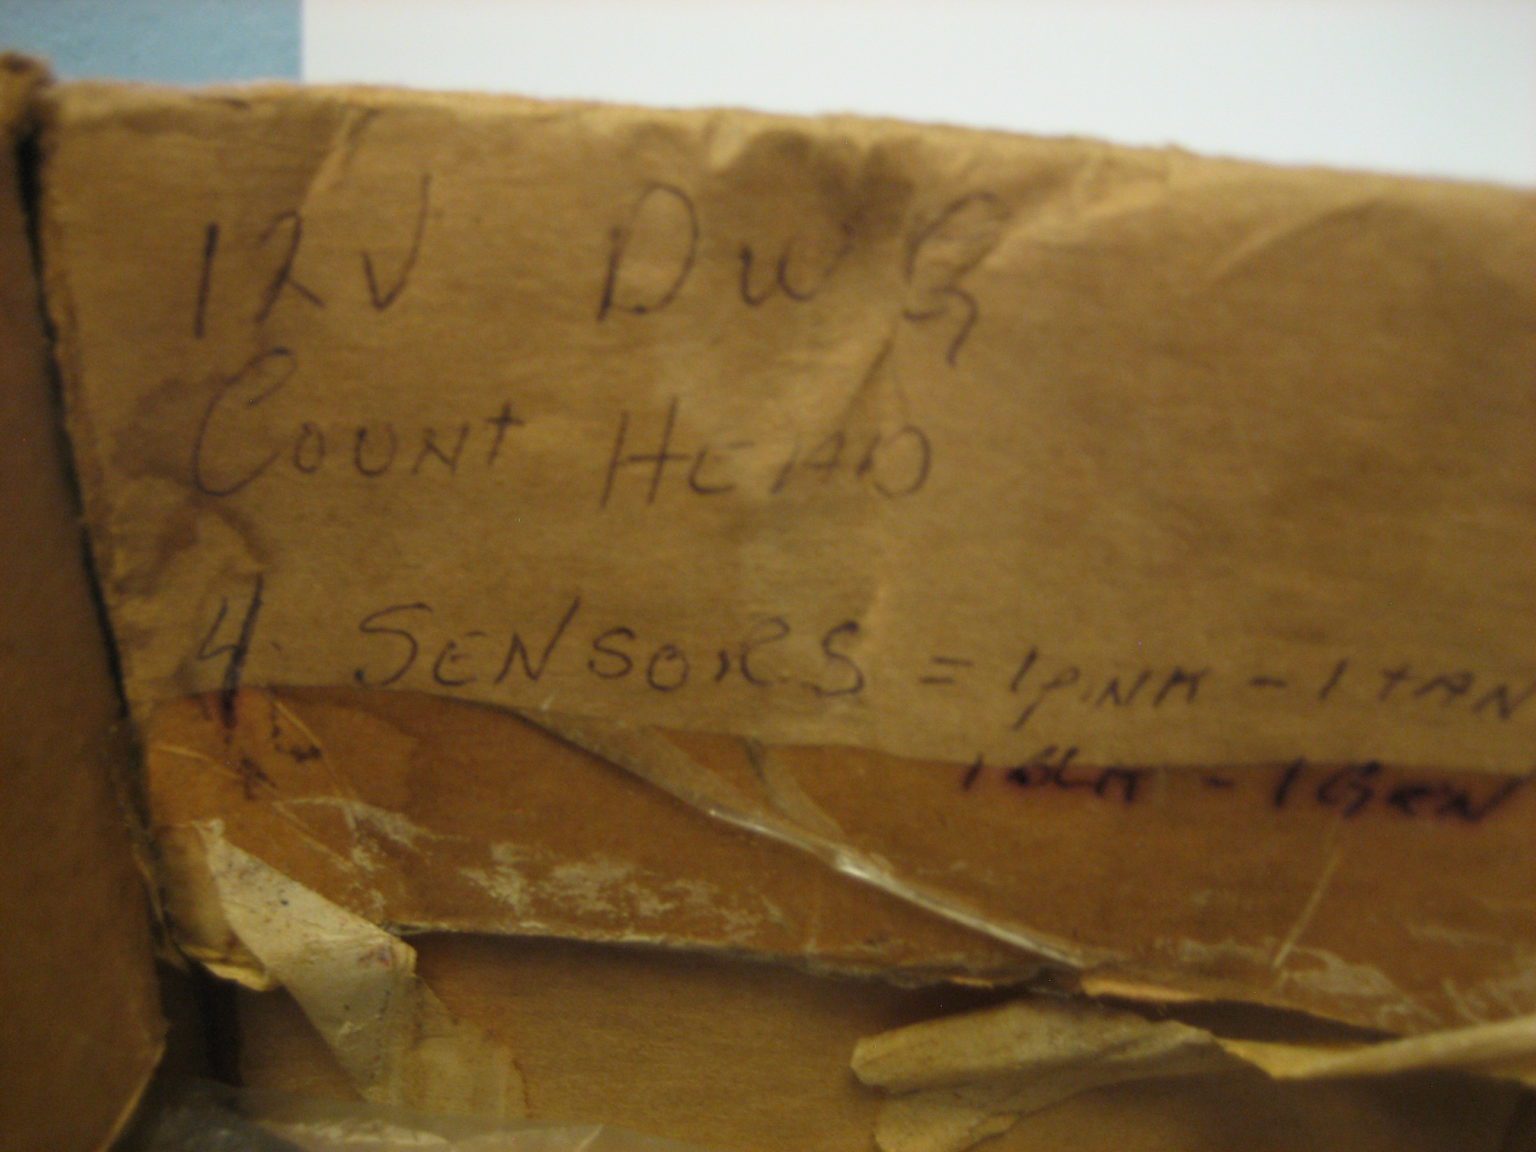 12V DWG
COUNt HEAD
4 SENSORS = 1 PiNK - 1 tAN
1 BLK - 1 GRN